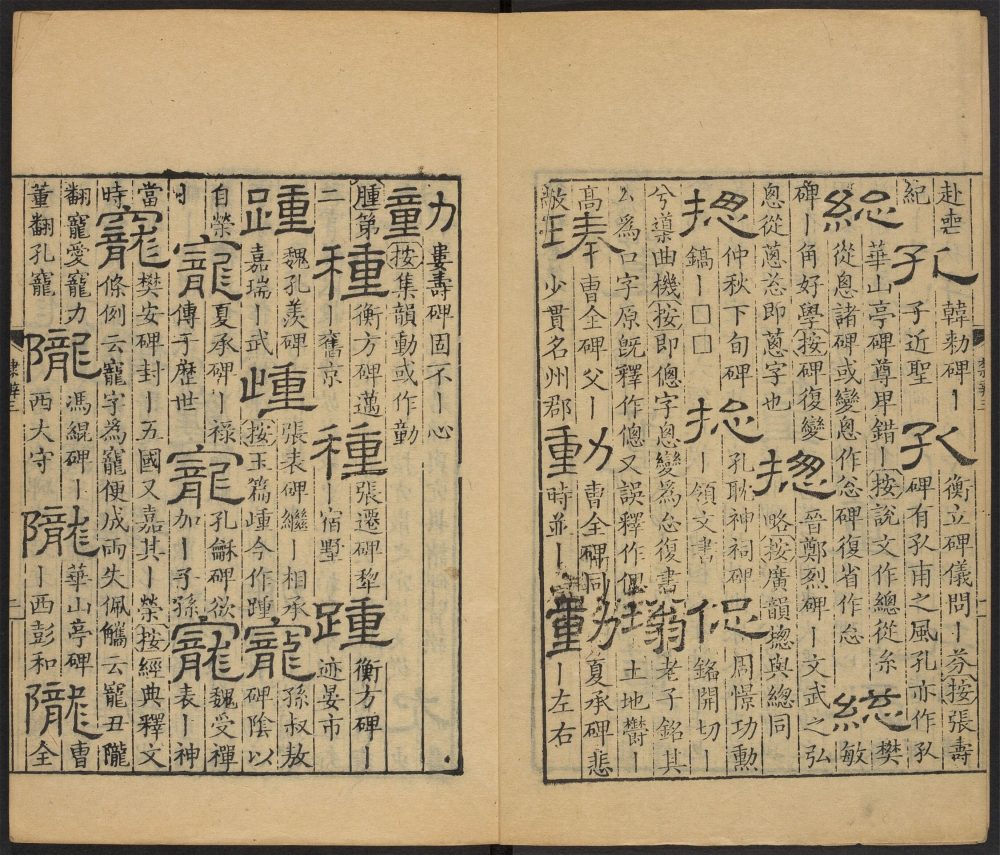 赴喪紀孔韓勑碑丨子近聖孔衡立碑儀問丨芬按張壽碑有孔甫之風孔亦作孔
總華山亭碑尊卑錯丨按說文作總從糸從悤諸碑或變悤作忩碑復省作忩総樊敏
碑丨角好學按碑復變悤從蔥忩即蔥字也摠晉鄭烈碑丨文武之弘略按廣韻摠與總同
摠仲秋下旬碑鎬丨□□捴孔耽神祠碑丨領文書傯周憬功勳銘開切丨
兮導曲機按即傯字悤變爲忩復書厶爲口字原旣釋作傯又誤釋作偘蓊老子銘其丨土地鬱丨
高敞琫曹全碑父丨少貫名州郡動曹全碑同時並丨動夏承碑悲丨左右
動婁壽碑固不丨心按集韻動或作勭
腫第二種衡方碑邁丨舊京種張遷碑犁丨宿墅踵衡方碑丨迹晏市
踵魏孔羨碑嘉瑞丨武歱張表碑繼丨相承按玉篇歱今作踵寵孫叔敖碑陰以
自榮小丨寵夏承碑丨祿傳于歷世寵孔龢碑欲加丨子孫寵魏受禪表丨神
當時寵樊安碑封丨五國又嘉其丨榮按經典釋文條例云寵字爲寵便成兩失佩觿云寵丑隴
翻寵愛寵力董翻孔寵隴馮緄碑丨西大守隴華山亭碑丨西彭和隴曹全
隸辨三